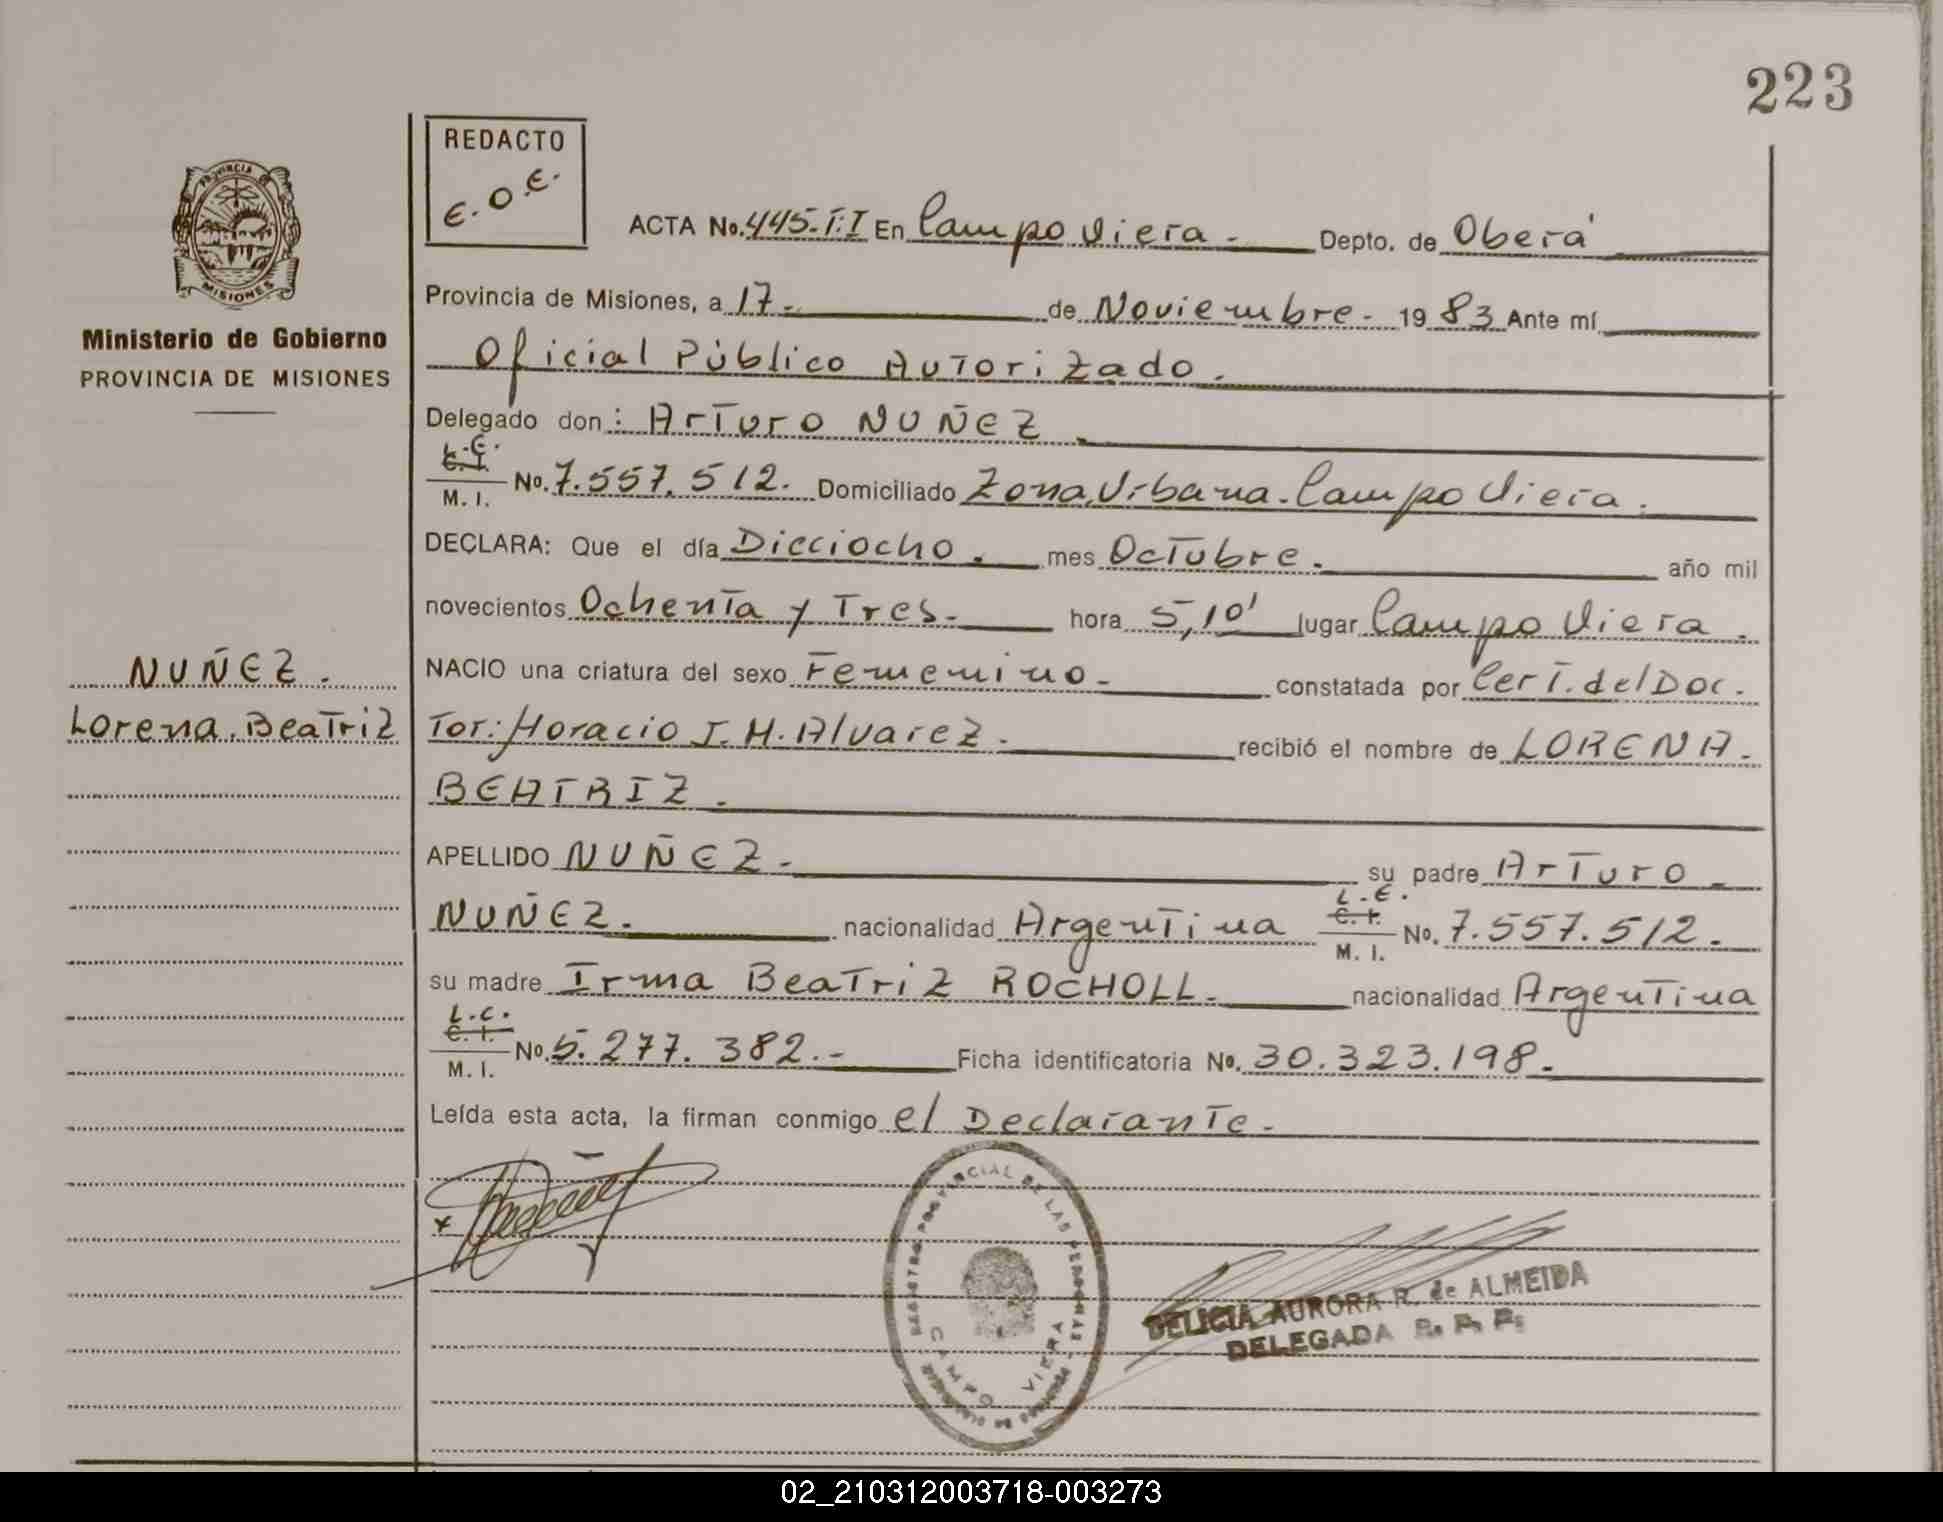 223
REDACTO
E.O.E.
PROVINCIA
MISIONES
Ministerio de Gobierno
PROVINCIA DE MISIONES
ACTA No. 445.T:I En Campo Viera.- Depto. de Oberá
Provincia de Misiones, a 17.- de Noviembre.- 1983 Ante mí
Oficial Público Autorizado.
Delegado don: Arturo NUÑEZ
L.E.
C. I.
M. I. No. 7.557.512. Domiciliado Zona Urbana. Campo Viera.
DECLARA: Que el día Dieciocho. mes Octubre. año mil
novecientos Ochenta y Tres.- hora 5,10' lugar Campo Viera.
NACIO una criatura del sexo Femenino.- constatada por Cert. del Doc.
Tor: Horacio J. H. Alvarez. recibió el nombre de LORENA.
BEATRIZ.
NUÑEZ.
Lorena. Beatriz
APELLIDO NUÑEZ.- su padre Arturo
NUÑEZ. nacionalidad Argentina L.E. C. I. M. I. No. 7.557.512.
su madre Irma Beatriz ROCHOLL. nacionalidad Argentina
L.C.
C. I.
M. I. No. 5.277.382.- Ficha identificatoria No. 30.323.198.
Leída esta acta, la firman conmigo el Declarante.
REGISTRO PROVINCIAL DE LAS PERSONAS
CAMPO VIERA
DELICIA AURORA R. de ALMEIDA
DELEGADA R. P. P.
02_210312003718-003273